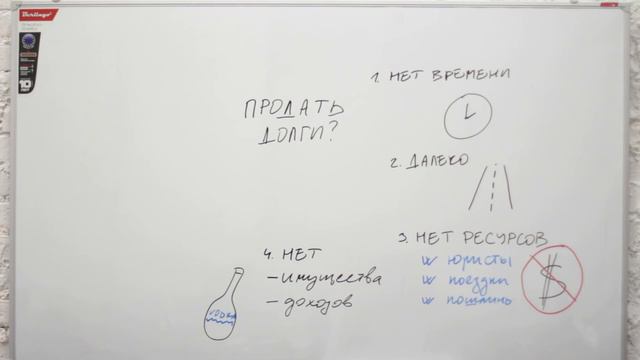 Berlingo
ПРОДАТЬ
ДОЛГИ?
1. НЕТ ВРЕМЕНИ
2. ДАЛЕКО
3. НЕТ РЕСУРСОВ
юристы
поездки
пошлины
$
4. НЕТ
– имущества
– доходов
VODKA